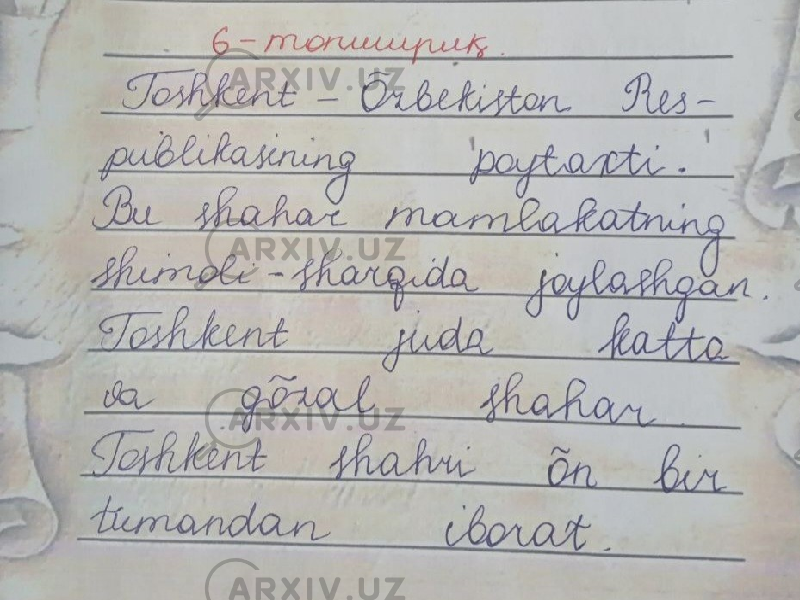 6-топшириқ.
Toshkent – Õzbekiston Res-
publikasining poytaxti.
Bu shahar mamlakatning
shimoli-sharqida joylashgan.
Toshkent juda katta
va gõzal shahar.
Toshkent shahri õn bir
tumandan iborat.
ARXIV.UZ
ARXIV.UZ
ARXIV.UZ
ARXIV.UZ